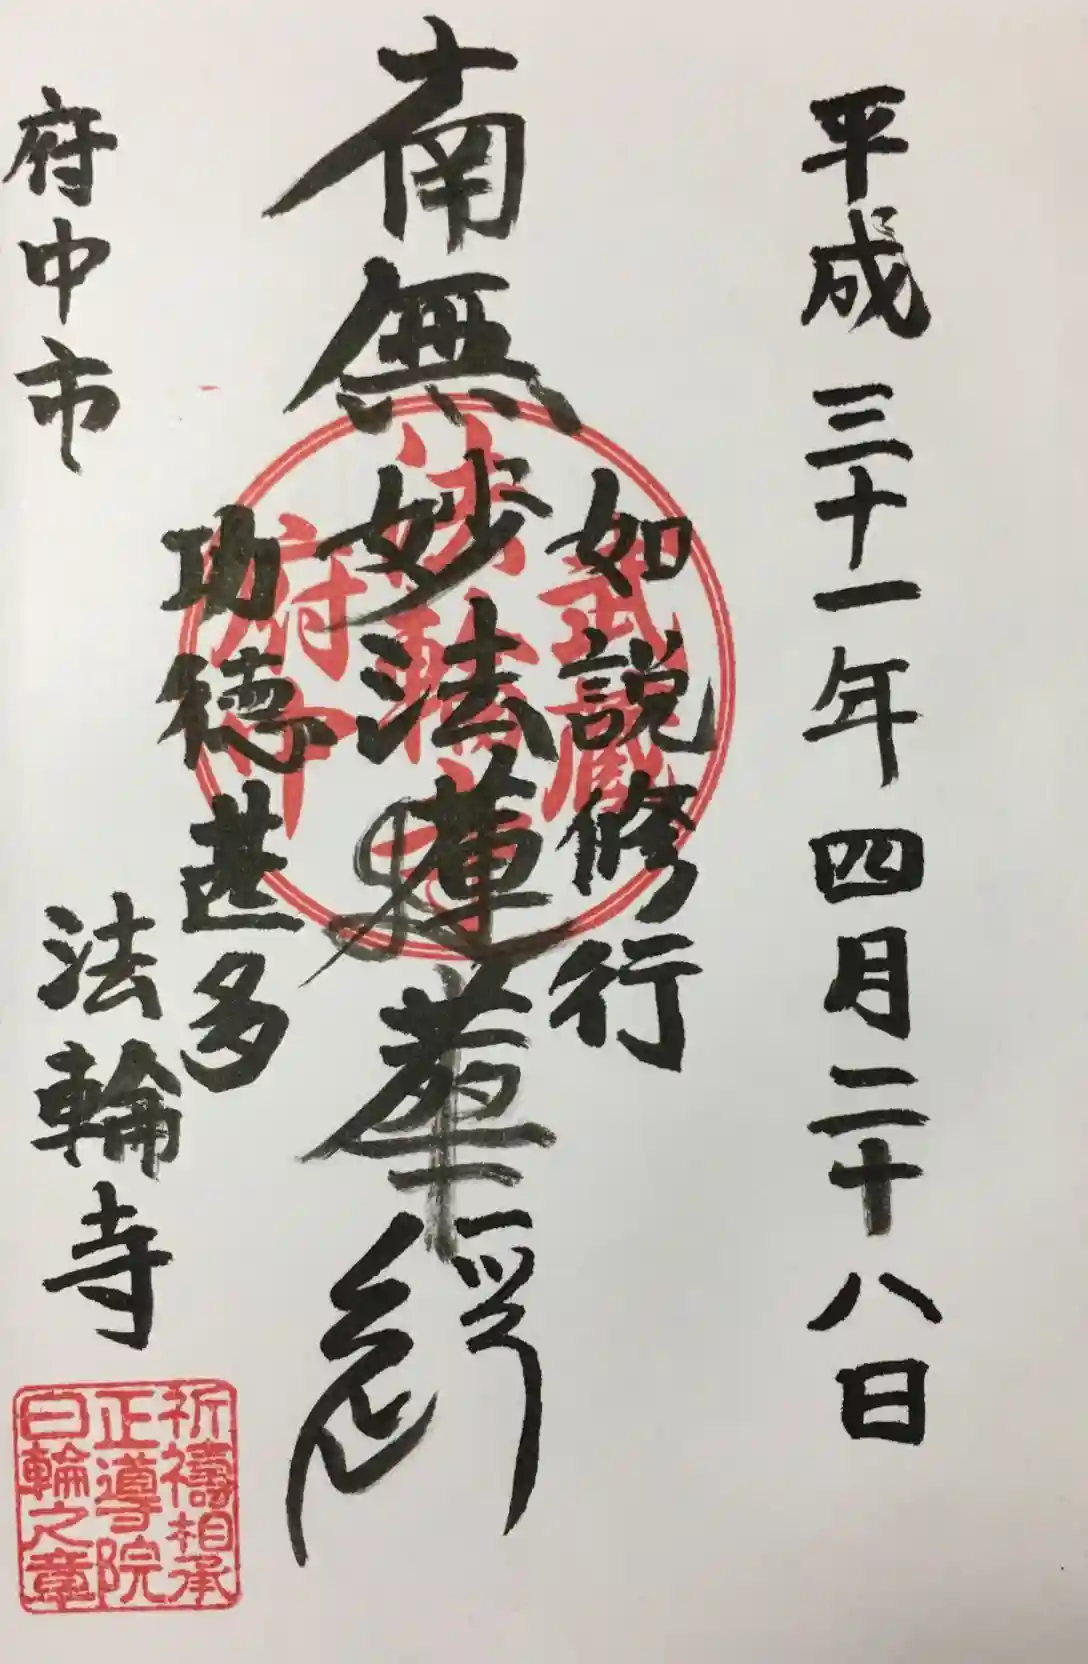 平成三十一年四月二十八日
如説修行
南無妙法蓮華経
功徳甚多
府中市 法輪寺
武蔵
法輪寺
府中
祈祷相承
正導院
日輪之章